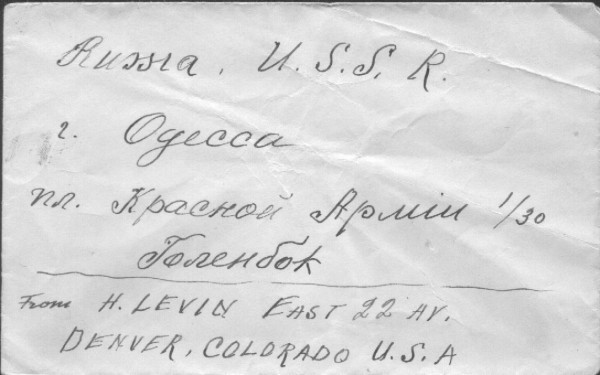 Russia, U.S.S.R.
г. Одесса
пл. Красной Армiи 1/30
Голенбок
From H. LEVIN EAST 22 AV.
DENVER, COLORADO U.S.A